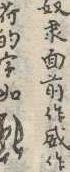 奴隶面前作威作
荷的字如